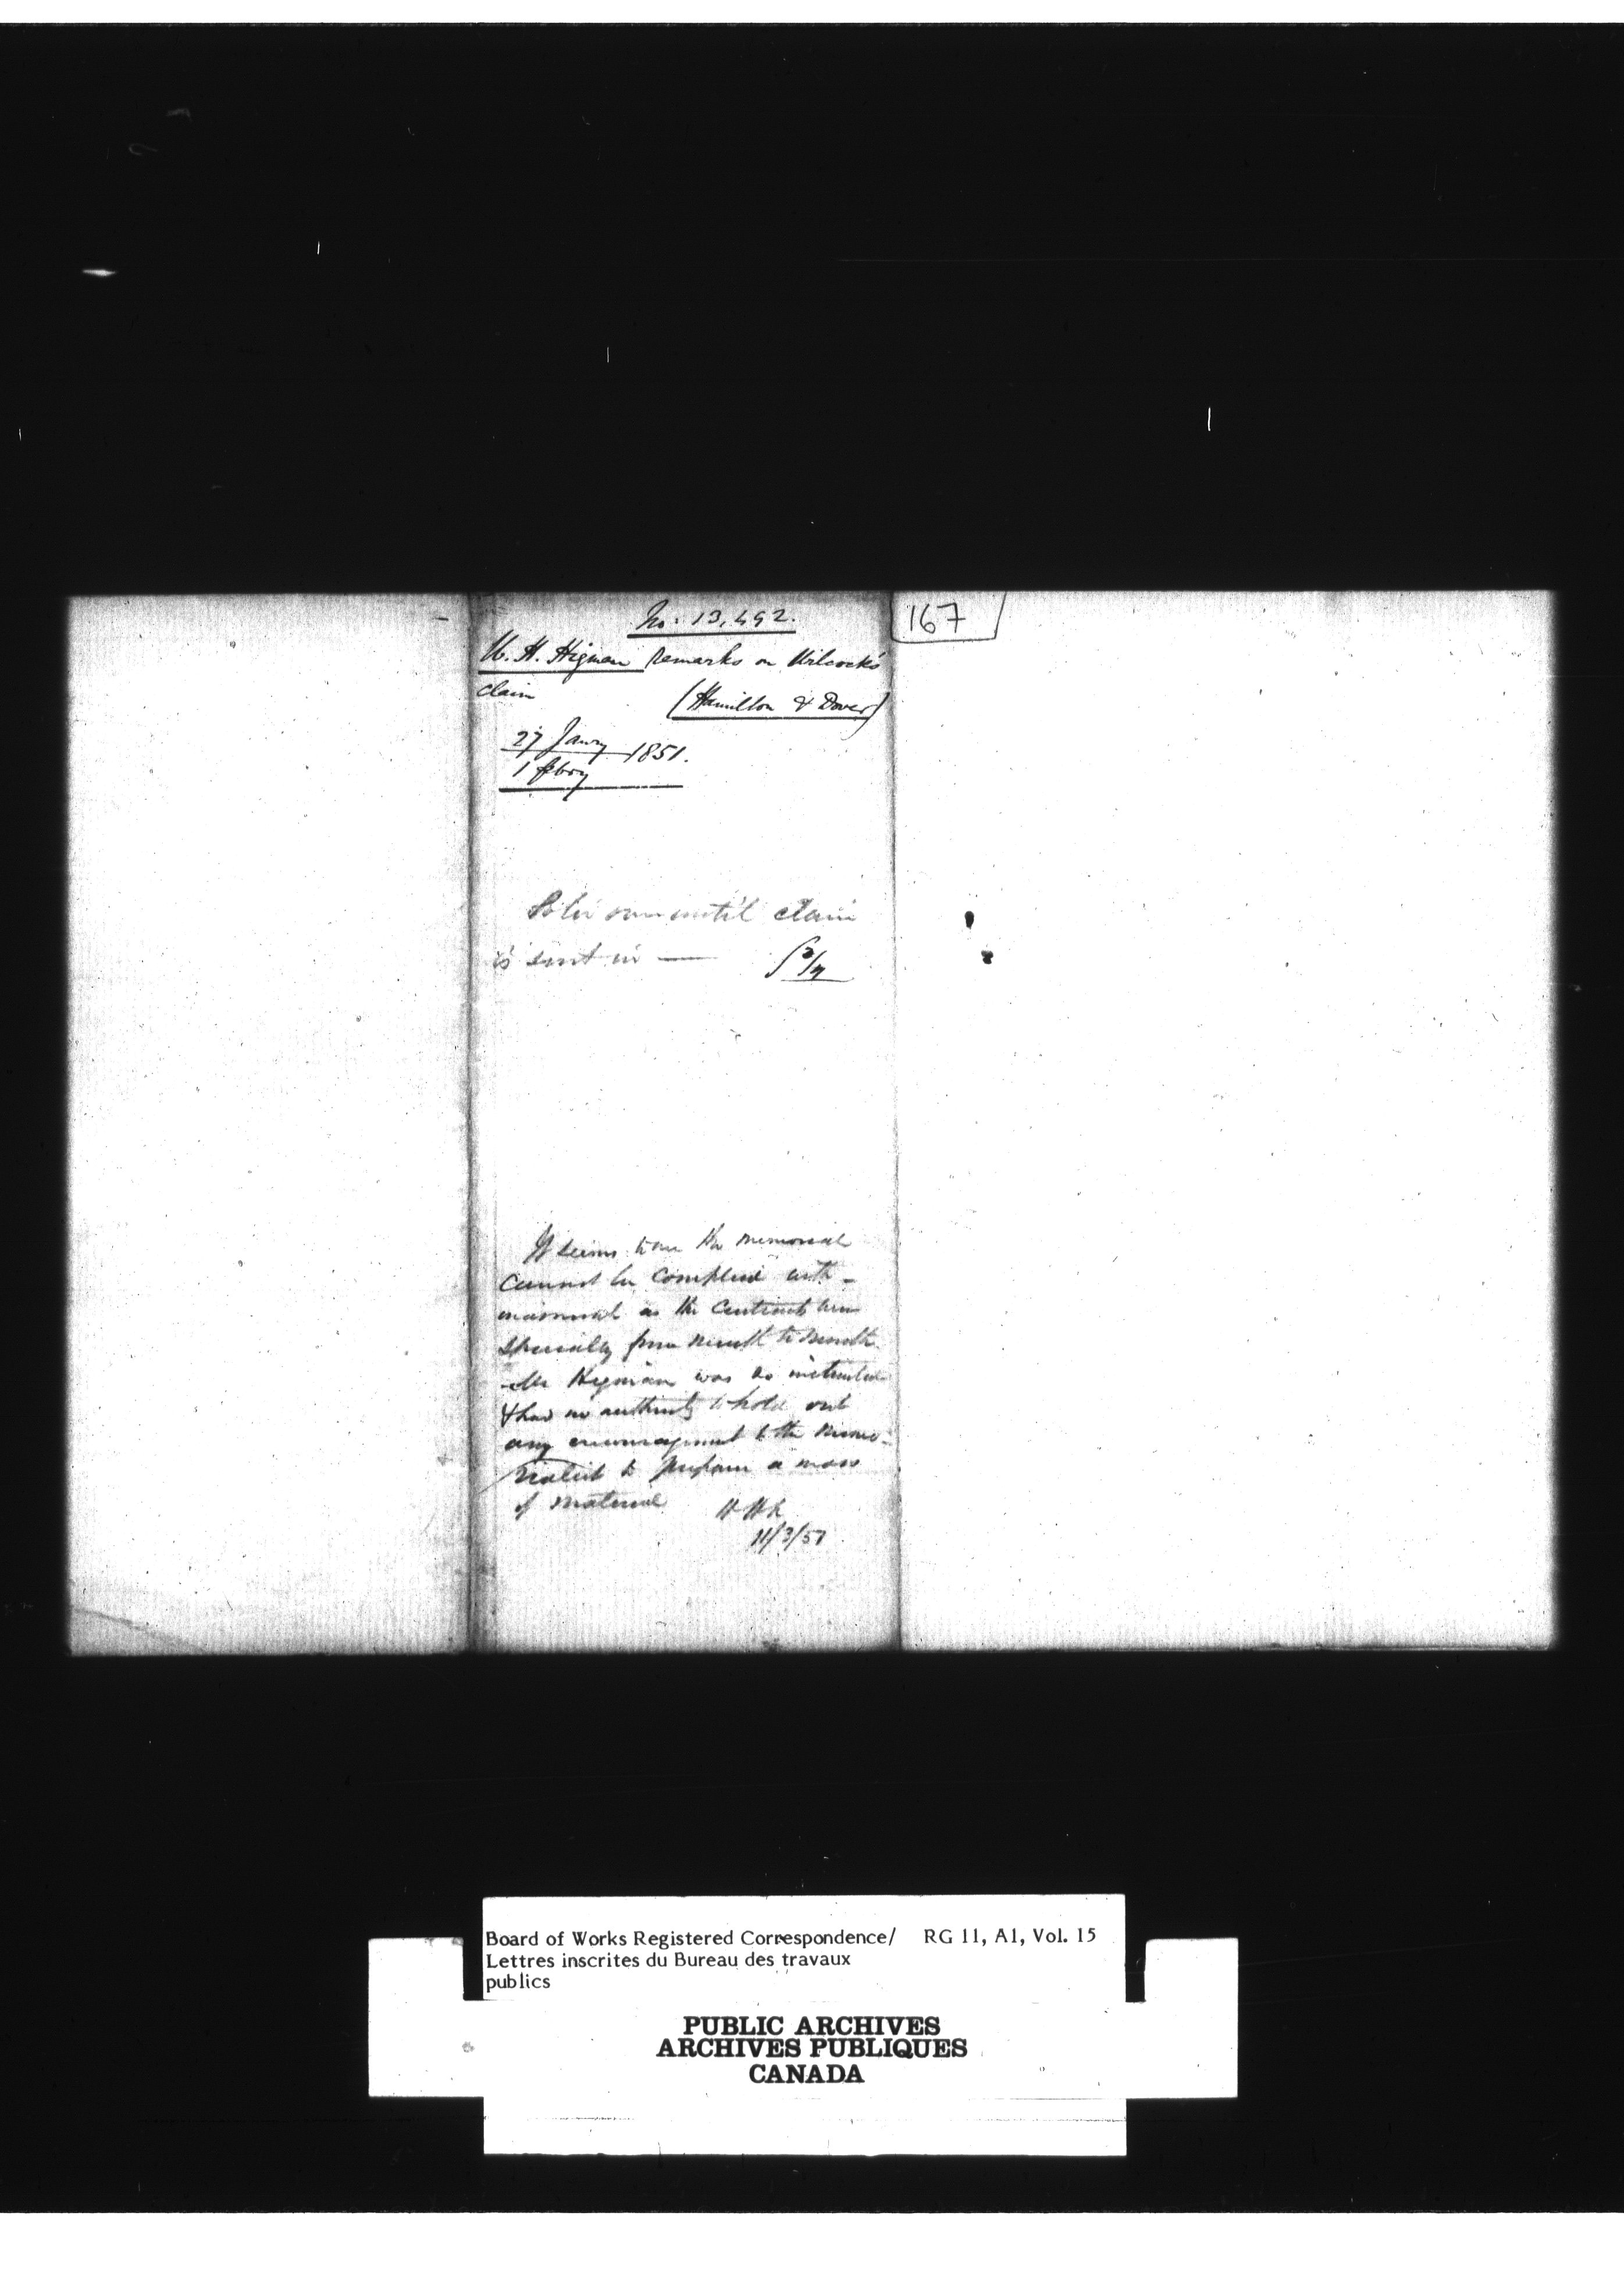 No: 13,492.
167
W. H. Higman Remarks on Wilcock's
claim
(Hamilton & Dover)
27 Jany 1851.
1 febry
until claim
is sent in —
It seems to me the memorial
cannot be complied with
as the Contracts
specially from month to month
Mr Higman was so instructed
& had no authority to hold out
any encouragement to the memo-
rialist to prepare a mass
of material
H H K
11/3/51
Board of Works Registered Correspondence/ RG 11, A1, Vol. 15
Lettres inscrites du Bureau des travaux
publics
PUBLIC ARCHIVES
ARCHIVES PUBLIQUES
CANADA